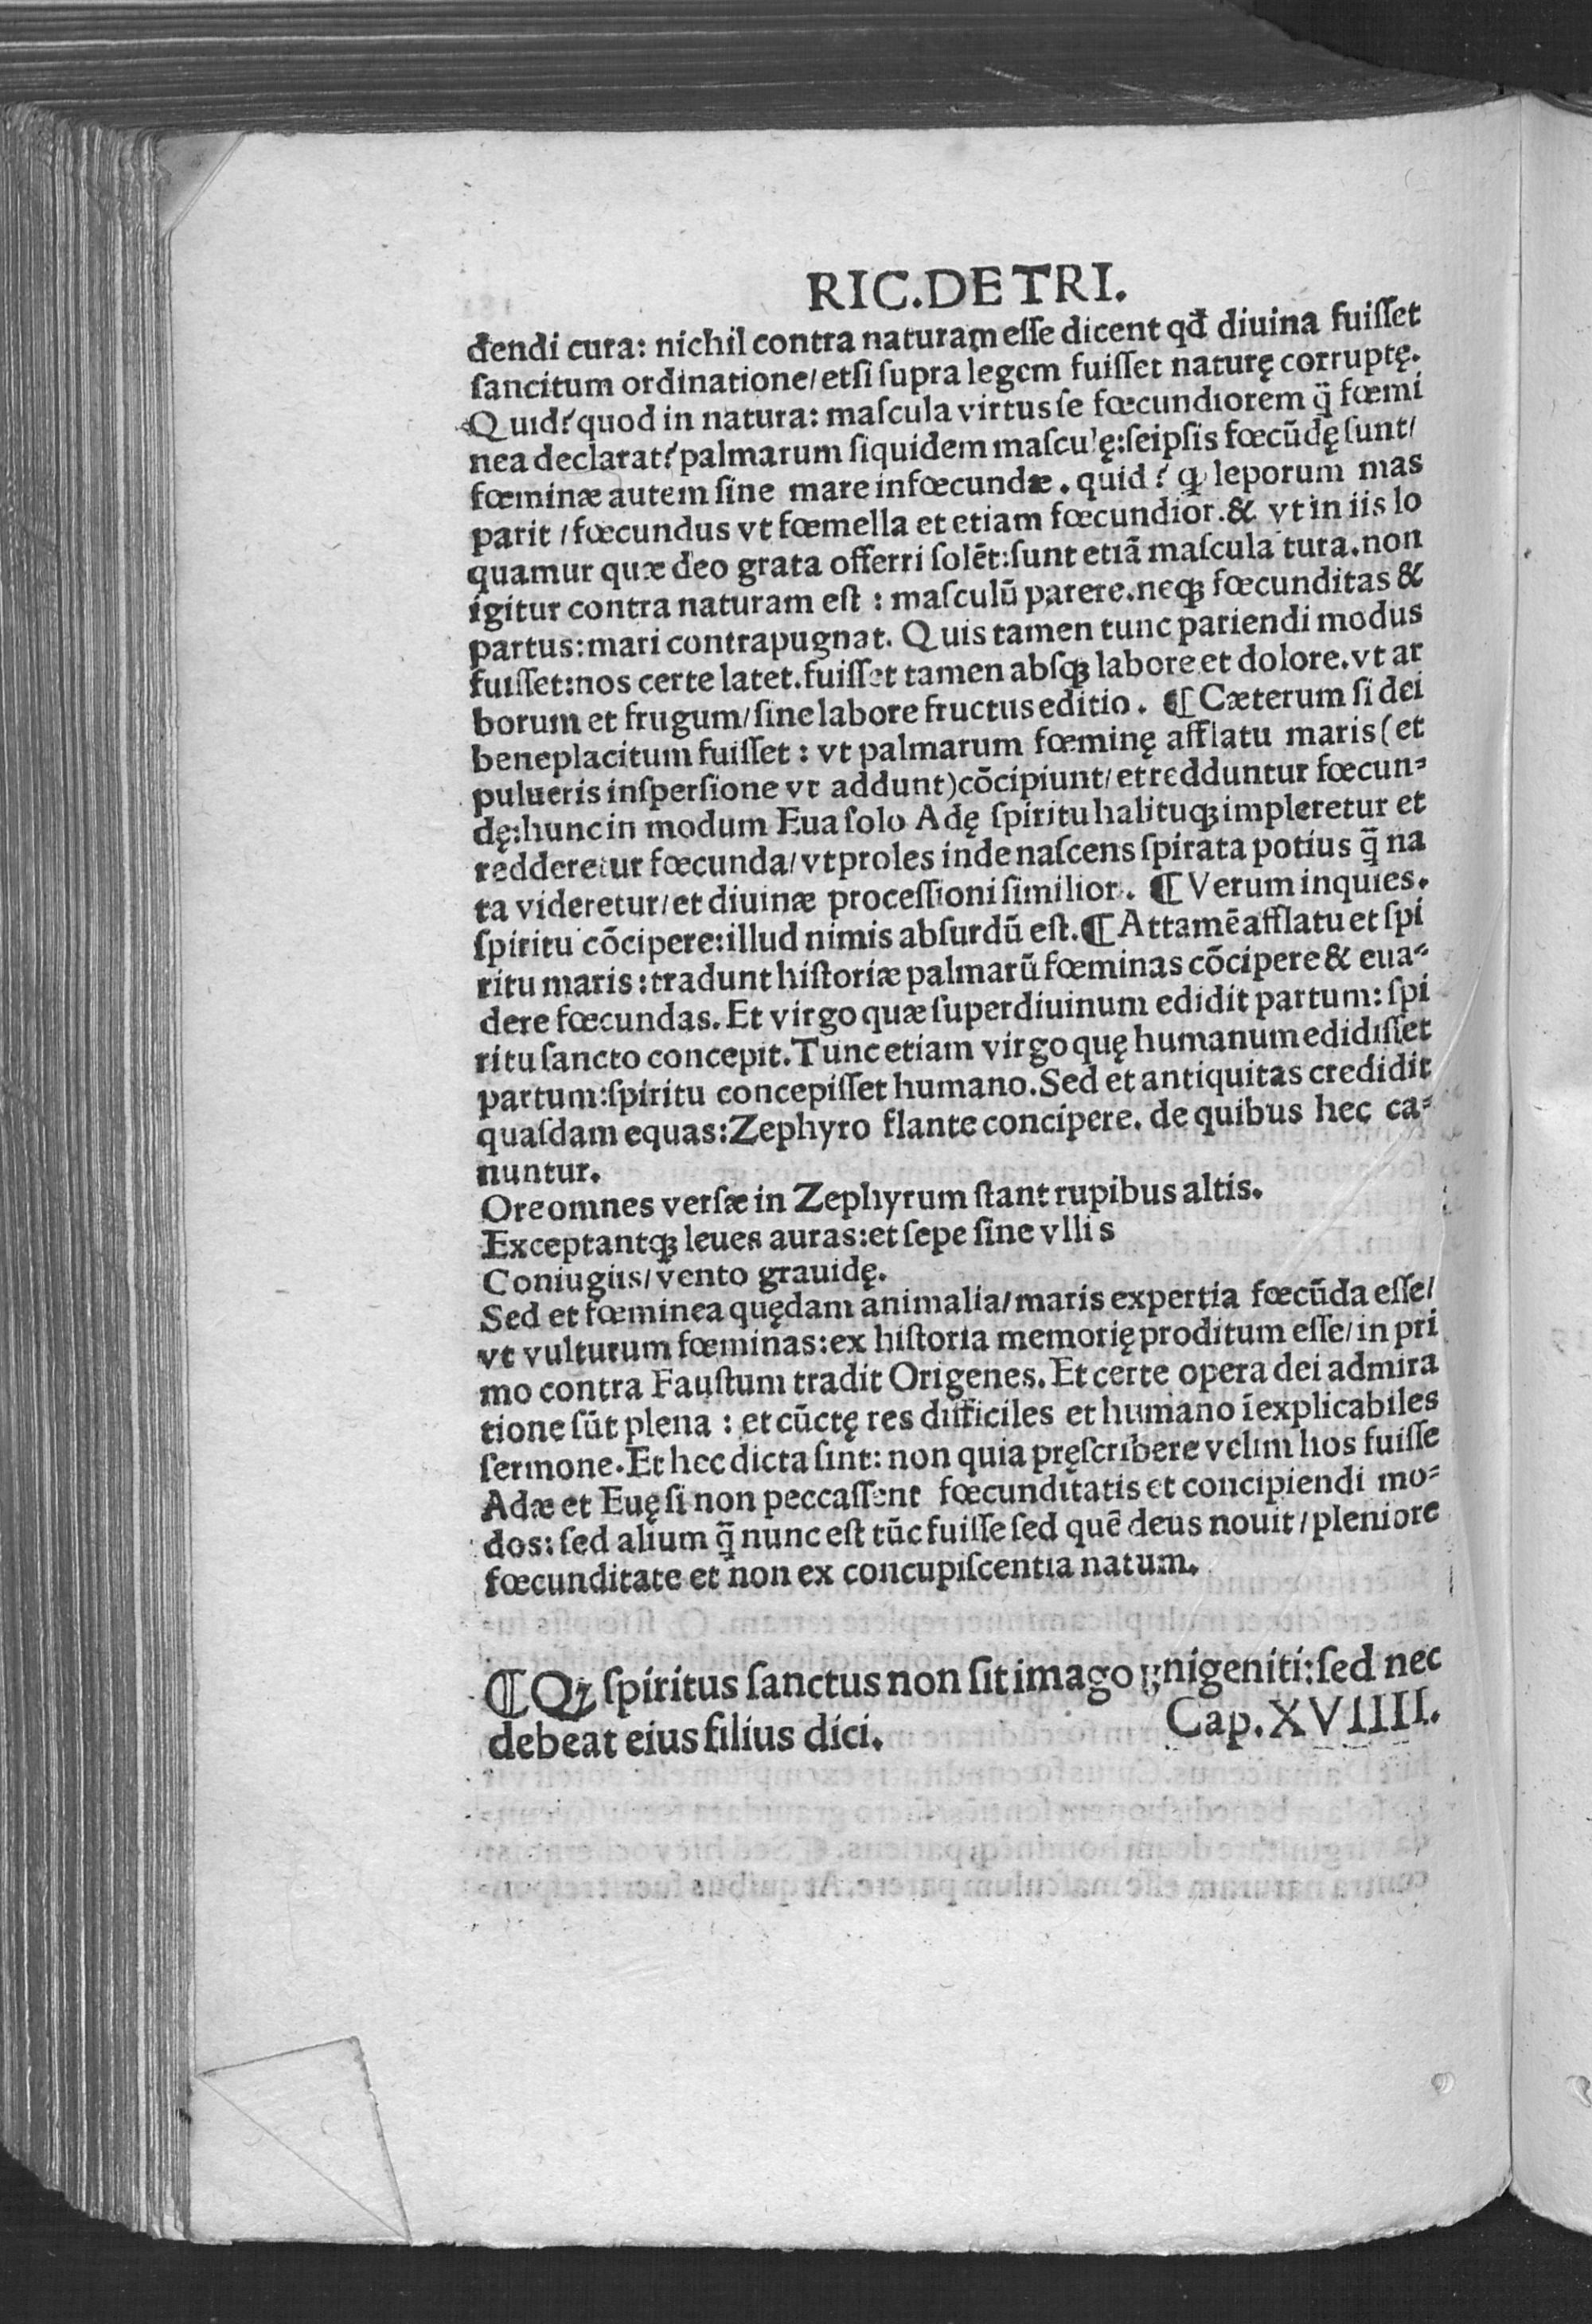 RIC.DE TRI.
đendi cura: nichil contra naturam esse dicent qđ diuina fuisset
sancitum ordinatione/ etsi supra legem fuisset naturę corruptę.
Quid? quod in natura: mascula virtus se fœcundiorem q̃ fœmi
nea declarat? palmarum siquidem masculę: seipsis fœcũdę sunt/
fœminæ autem sine mare infœcundæ. quid? ꝙ leporum mas
parit / fœcundus vt fœmella et etiam fœcundior. & vt in iis lo
quamur quæ deo grata offerri solẽt: sunt etiã mascula tura. non
igitur contra naturam est : masculũ parere. neqꝫ fœcunditas &
partus: mari contrapugnat. Quis tamen tunc pariendi modus
fuisset: nos certe latet. fuisset tamen absqꝫ labore et dolore. vt ar
borum et frugum/ sine labore fructus editio. ¶ Cæterum si dei
beneplacitum fuisset : vt palmarum fœminę afflatu maris (et
pulueris inspersione vt addunt) cõcipiunt/ et redduntur fœcun⸗
dę: hunc in modum Eua solo Adę spiritu halituqꝫ impleretur et
redderetur fœcunda/ vt proles inde nascens spirata potius q̃ na
ta videretur/ et diuinæ processioni similior. ¶ Verum inquies.
spiritu cõcipere: illud nimis absurdũ est. ¶ Attamẽ afflatu et spi
ritu maris: tradunt historiæ palmarũ fœminas cõcipere & eua⸗
dere fœcundas. Et virgo quæ superdiuinum edidit partum: spi
ritu sancto concepit. Tunc etiam virgo quę humanum edidisset
partum: spiritu concepisset humano. Sed et antiquitas credidit
quasdam equas: Zephyro flante concipere. de quibus hec ca⸗
nuntur.
Ore omnes versæ in Zephyrum stant rupibus altis.
Exceptantqꝫ leues auras: et sepe sine vllis
Coniugiis/ vento grauidę.
Sed et fœminea quędam animalia/ maris expertia fœcũda esse/
vt vulturum fœminas: ex historia memorię proditum esse/ in pri
mo contra Faustum tradit Origenes. Et certe opera dei admira
tione sũt plena : et cũctę res difficiles et humano ĩexplicabiles
sermone. Et hec dicta sint: non quia pręscribere velim hos fuisse
Adæ et Euę si non peccassent fœcunditatis et concipiendi mo⸗
dos: sed alium q̃ nunc est tũc fuisse sed quẽ deus nouit / pleniore
fœcunditate et non ex concupiscentia natum.
¶ Qꝫ spiritus sanctus non sit imago vnigeniti: sed nec
debeat eius filius dici. Cap. XVIIII.